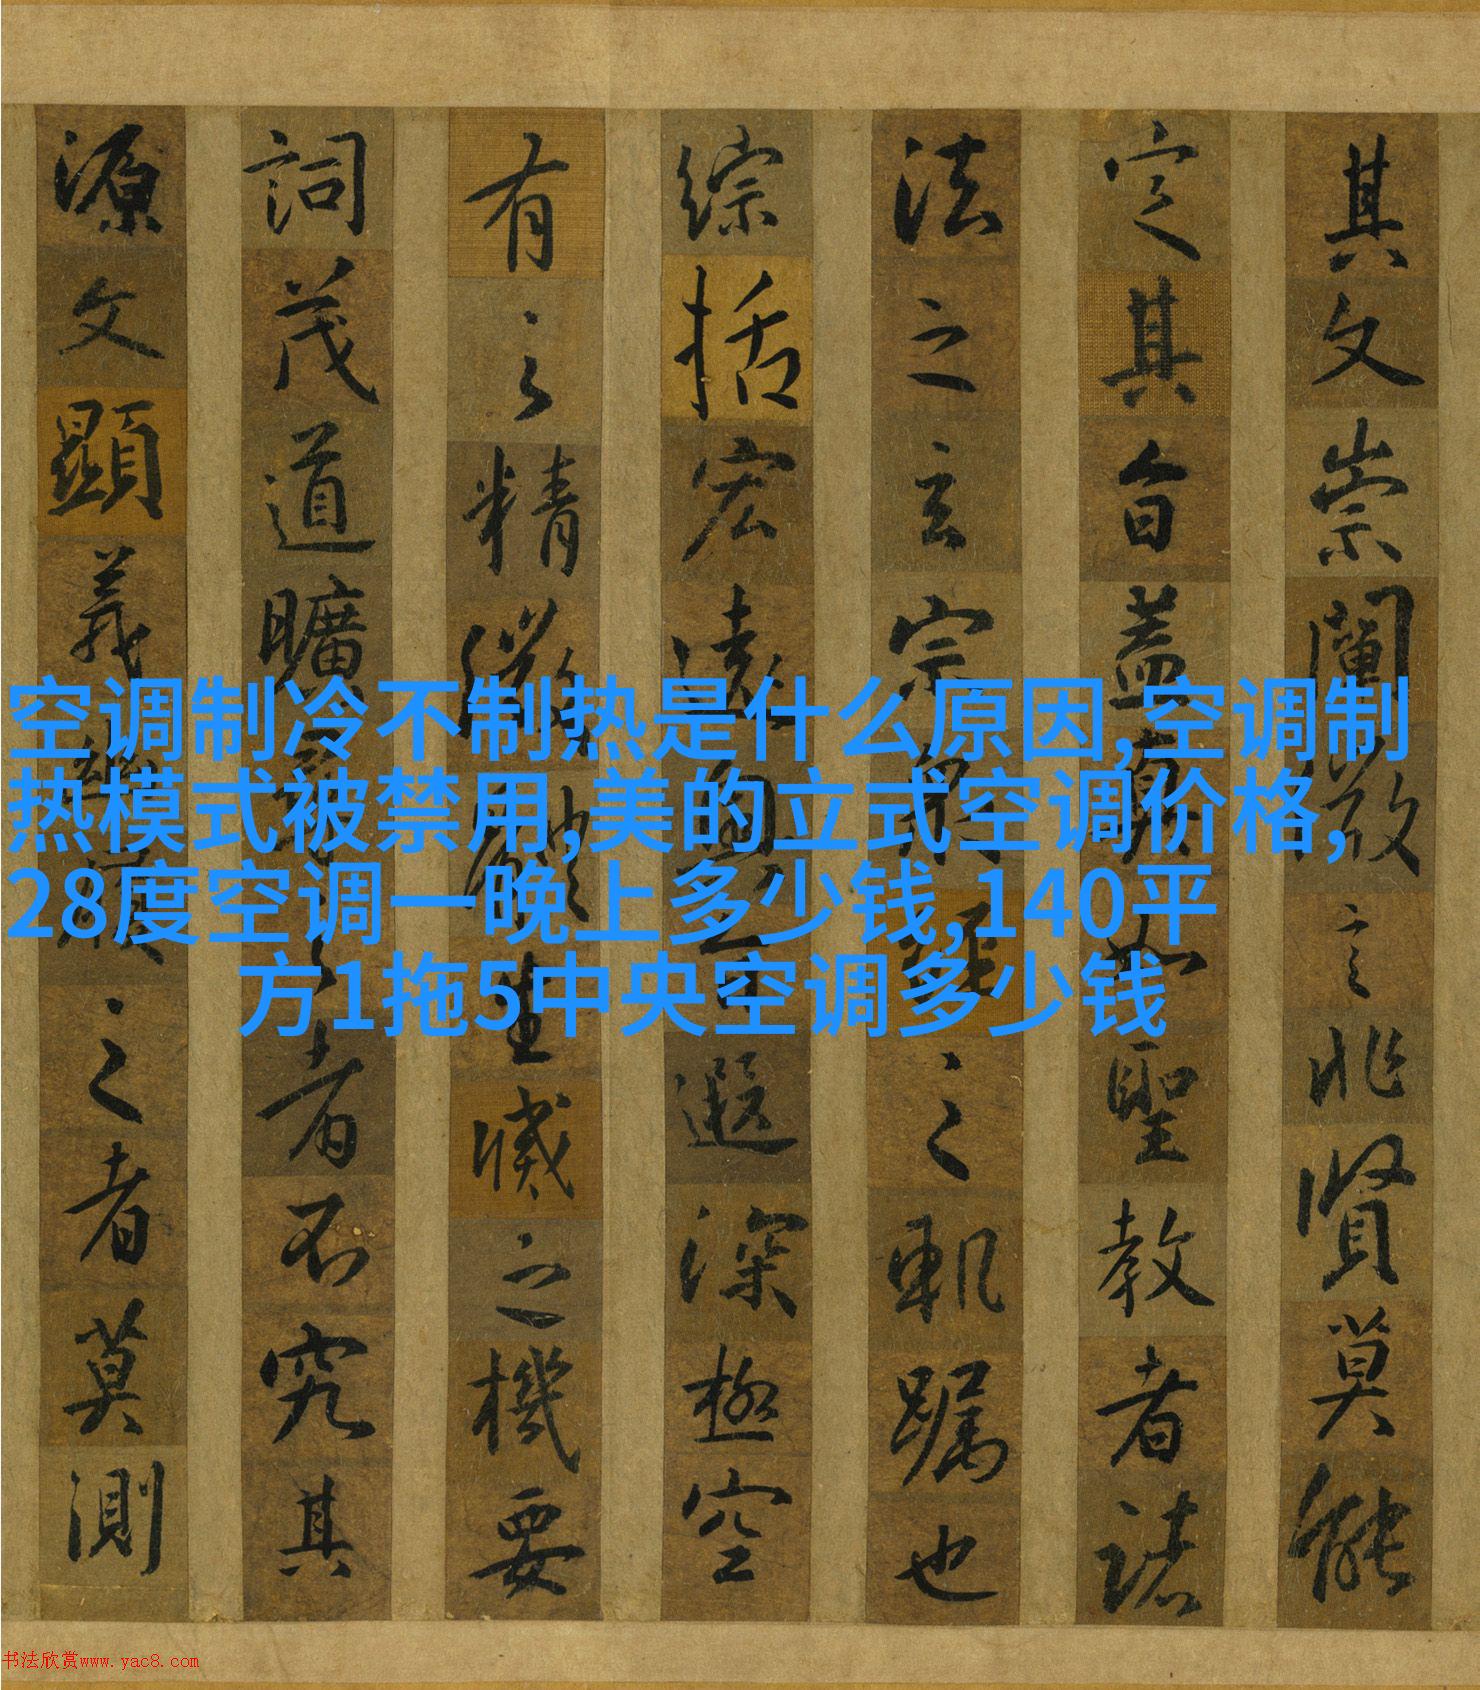 其文崇闡微言非賢莫能
定其旨蓋真如聖教者諸
法之玄宗眾經之軌躅也
綜括宏遠奧旨遐深極空
有之精微體生滅之機要
詞茂道曠尋之者不究其
源文顯義履之者莫測
空调制冷不制热是什么原因,空调制
热模式被禁用,美的立式空调价格,
28度空调一晚上多少钱,140平
方1拖5中央空调多少钱
书法欣赏www.yac8.com